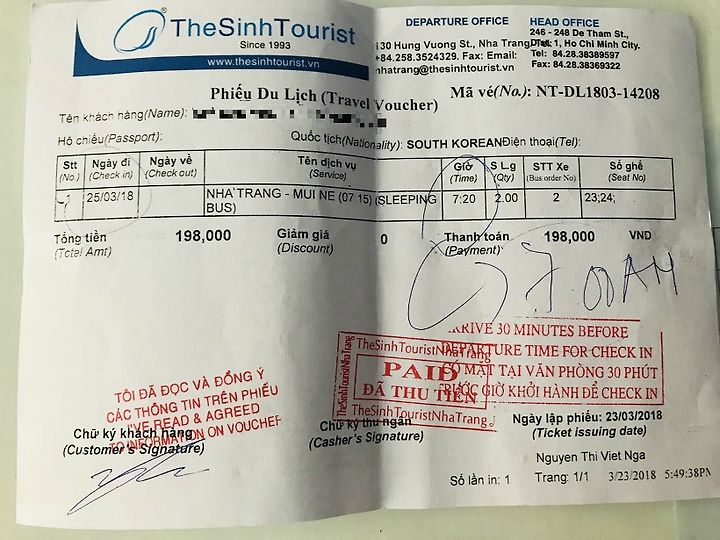 TheSinhTourist
Since 1993
www.thesinhtourist.vn
DEPARTURE OFFICE
130 Hung Vuong St., Nha Trang.
+84.258.3524329. Fax: Email:
nhatrang@thesinhtourist.vn
HEAD OFFICE
246 - 248 De Tham St.,
Dist. 1, Ho Chi Minh City.
Tel: 84.28.38389597
Fax: 84.28.38369322
Phiếu Du Lịch (Travel Voucher)
Mã vé(No.): NT-DL1803-14208
Tên khách hàng(Name):
Hộ chiếu(Passport): Quốc tịch(Nationality): SOUTH KOREAN Điện thoại(Tel):
Stt (No.) Ngày đi (Check in) Ngày về (Check out) Tên dịch vụ (Service) Giờ (Time) S L.g (Qty) STT Xe (Bus order No) Số ghế (Seat No)
1 25/03/18 NHA TRANG - MUI NE (07:15) (SLEEPING BUS) 7:20 2.00 2 23;24;
Tổng tiền (Total Amt) 198,000 Giảm giá (Discount) 0 Thanh toán (Payment) 198,000 VND
7 00 AM
ARRIVE 30 MINUTES BEFORE
DEPARTURE TIME FOR CHECK IN
CÓ MẶT TẠI VĂN PHÒNG 30 PHÚT
TRƯỚC GIỜ KHỞI HÀNH ĐỂ CHECK IN
TheSinhTouristNhaTrang
TheSinhTouristNhaTrang
PAID
ĐÃ THU TIỀN
TheSinhTouristNhaTrang
TÔI ĐÃ ĐỌC VÀ ĐỒNG Ý
CÁC THÔNG TIN TRÊN PHIẾU
I'VE READ & AGREED
TO INFORMATION ON VOUCHER
Chữ ký khách hàng
(Customer's Signature)
Chữ ký thu ngân
(Casher's Signature)
Ngày lập phiếu: 23/03/2018
(Ticket issuing date)
Nguyen Thi Viet Nga
Số lần in: 1 Trang: 1/1 3/23/2018 5:49:38PM